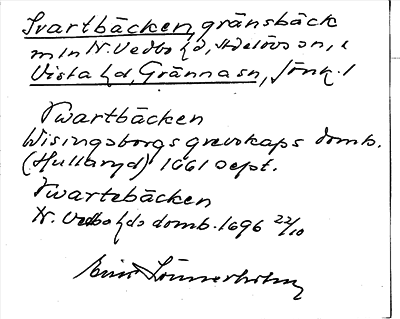 Svartbäcken, gränsbäck
mln N. Vedbo hd, Adelövs sn, o
Vista hd, Gränna sn, Jönk. l
Swartbäcken
Wisingsborgs grevskaps domb.
(Hullaryd) 1661 sept.
Swartebäcken
N. Vedbo hds domb. 1696 22/10